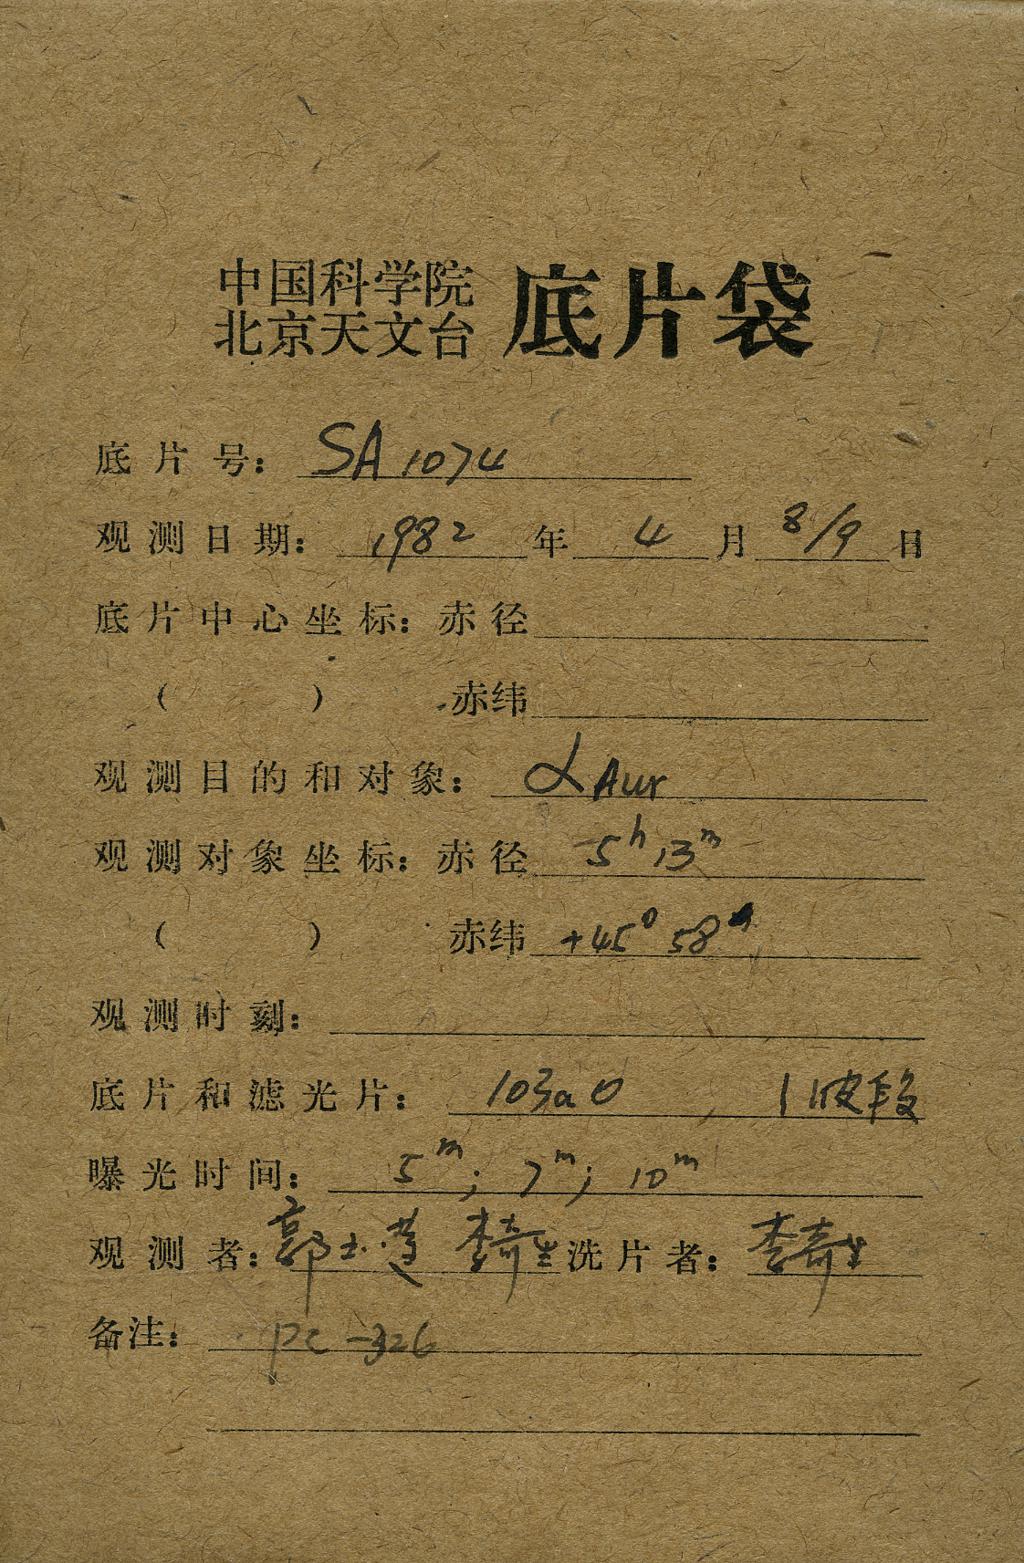 中国科学院
北京天文台 底片袋
底片号: SA1074
观测日期: 1982年 4月 8/9日
底片中心坐标: 赤径
( ) 赤纬
观测目的和对象: α Aur
观测对象坐标: 赤径 5ʰ 13ᵐ
( ) 赤纬 +45° 58
观测时刻:
底片和滤光片: 103aO , 1波段
曝光时间: 5ᵐ; 7ᵐ; 10ᵐ
观测者: 郭玉莲 李奇生 洗片者: 李奇生
备注: PC-326